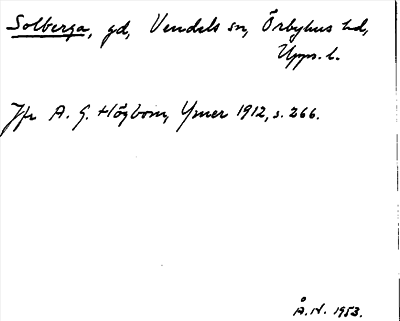 Solberga, gd, Vendels sn, Örbyhus hd,
Upps. l.
Jfr A. G. Högbom, Ymer 1912, s. 266.
Å. N. 1953.